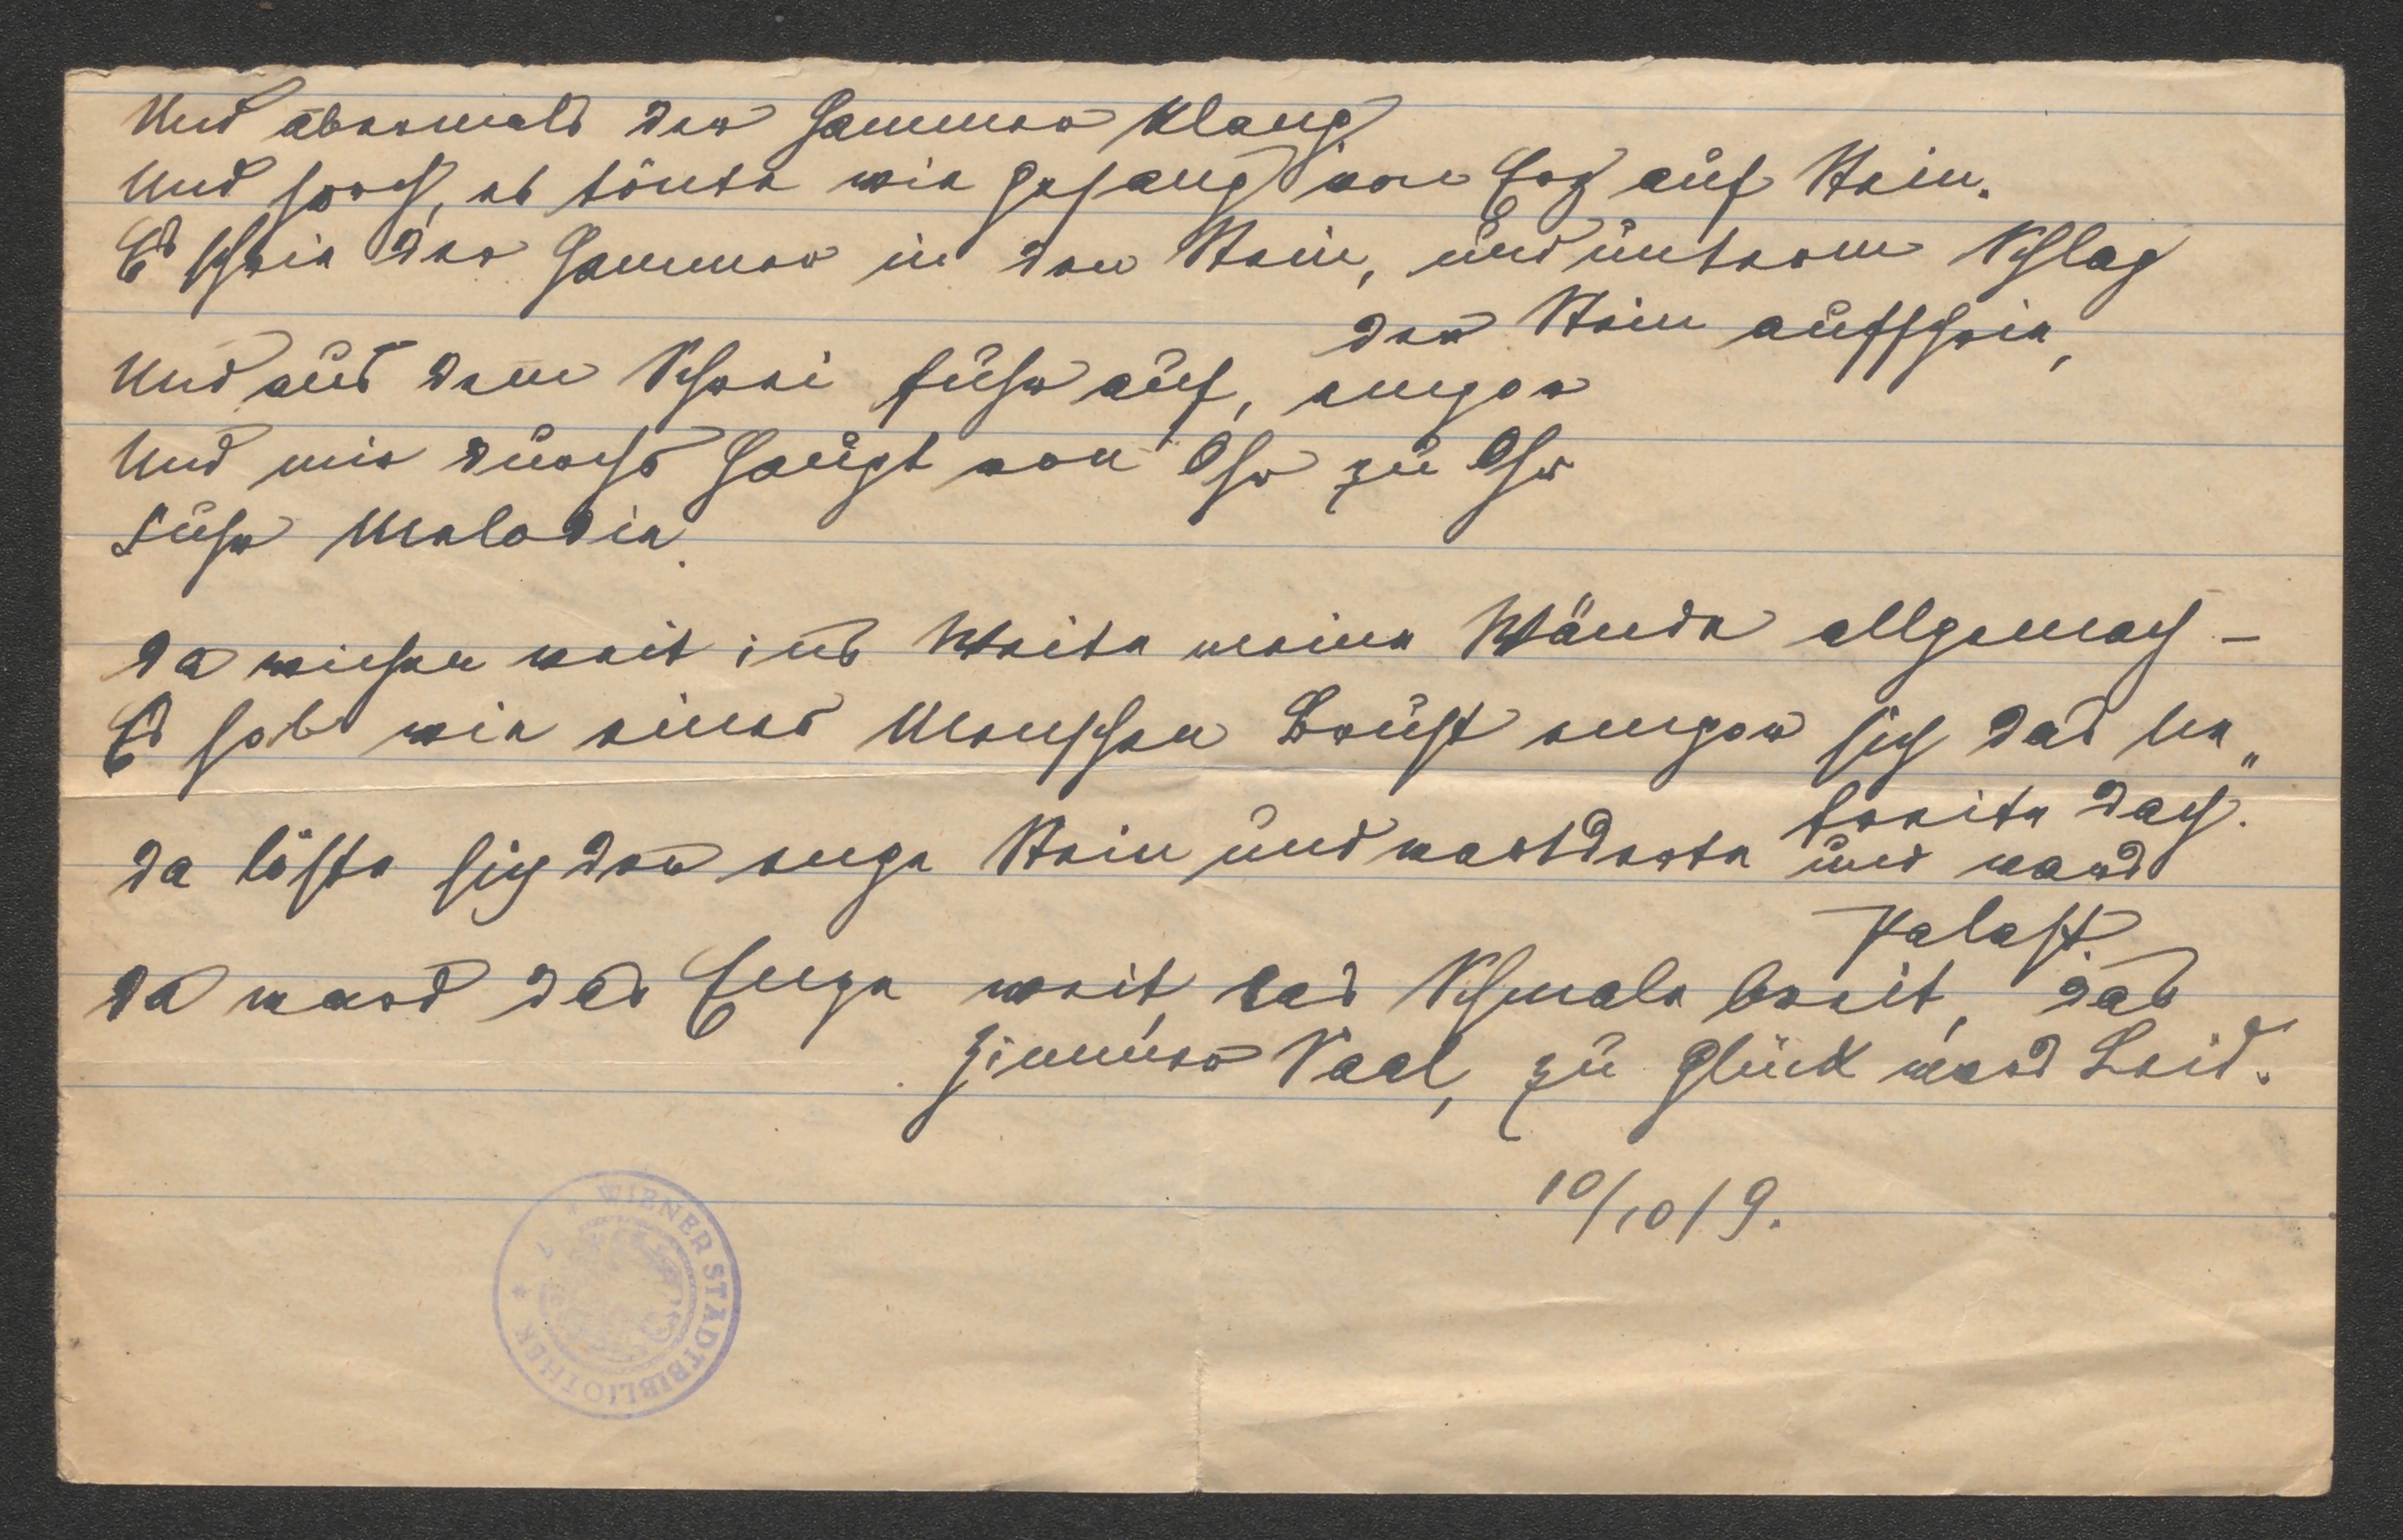 Und abermals der Hammer klang
Und horch, es tönte wie Gesang von Erz auf Stein.
Es schrie der Hammer in den Stein, und unterm Schlag
der Stein aufschrie,
Und aus dem Schrei fuhr auf, empor
Und mir durchs Haupt von Ohr zu Ohr
fuhr Melodie.
Da wichen weit ins Weite meine Wände allgemach –
Es hob wie eines Menschen Brust empor sich das be„
freite Dach.
Da löste sich der enge Stein und wards Gasten und ward
Palast
Da ward das Enge weit, das Schmale breit, das
Zimmer Saal, zu Glück ward Leid.
10/10 19.
WIENER STADTBIBLIOTHEK